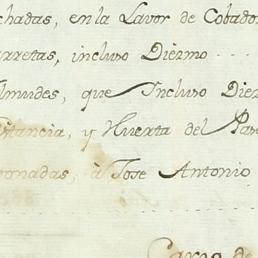 chadas, en la Lavor de Cobados
arretas, incluso Diezmo ....
lmudes, que Incluso Diez
stancia, y Huerta del Pas
onadas, à Jose Antonio
Cargo de